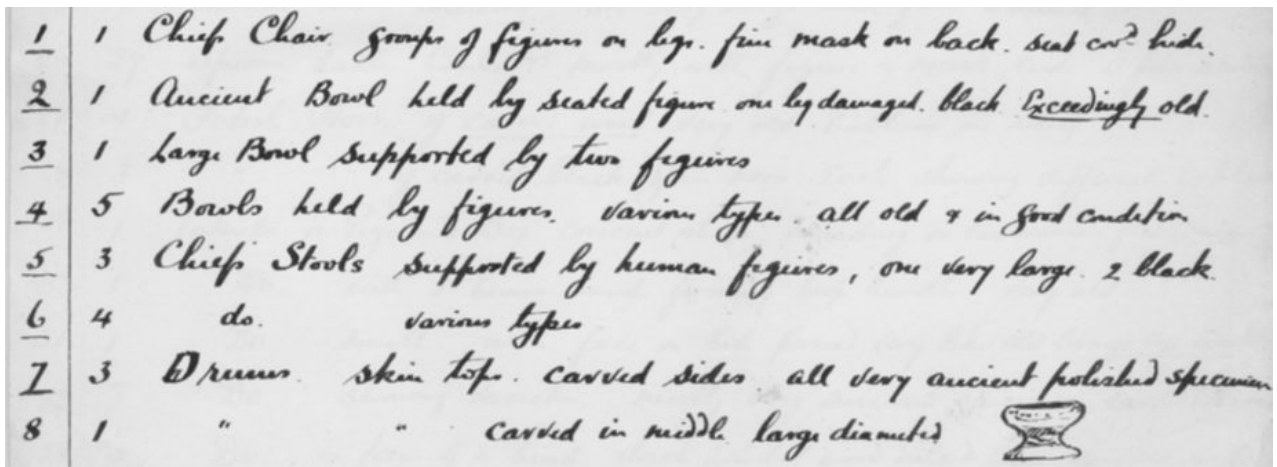 1 1 Chiefs Chair. groups of figures on legs. fine mask on back. seat covd hide.
2 1 Ancient Bowl held by seated figure one leg damaged. black Exceedingly old.
3 1 Large Bowl supported by two figures
4 5 Bowls held by figures. various types. all old & in good condition
5 3 Chiefs Stools supported by human figures, one very large. 2 black.
6 4 do. various types
7 3 Drums. skin tops. carved sides. all very ancient polished specimen
8 1 " " carved in middle large diameter